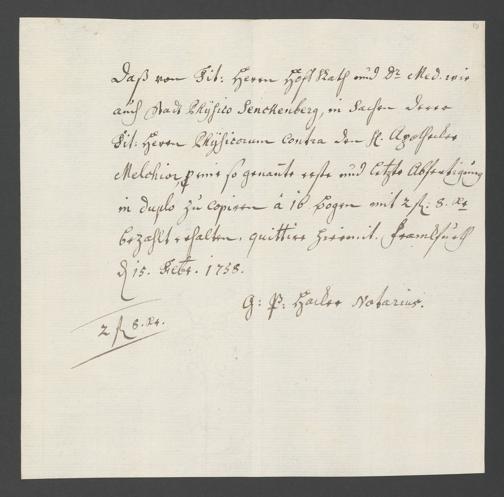 Daß von Tit: Herrn Hoff Rath und Dr. Med. wie
auch Stadt Physico Senckenberg, in Sachen derer
Tit: Herren Physicorum contra den H. Apothecker
Melchior, eine so genante erste und letzte Abfertigung
in duplo zu copiren à 16 bogen mit 2 fl: 8. Xr
bezahlt erhalten, quittire hiermit. Franckfurth
d 15. Febr. 1758.
G: P: Hacker Notarius.
2 fl 8. Xr.